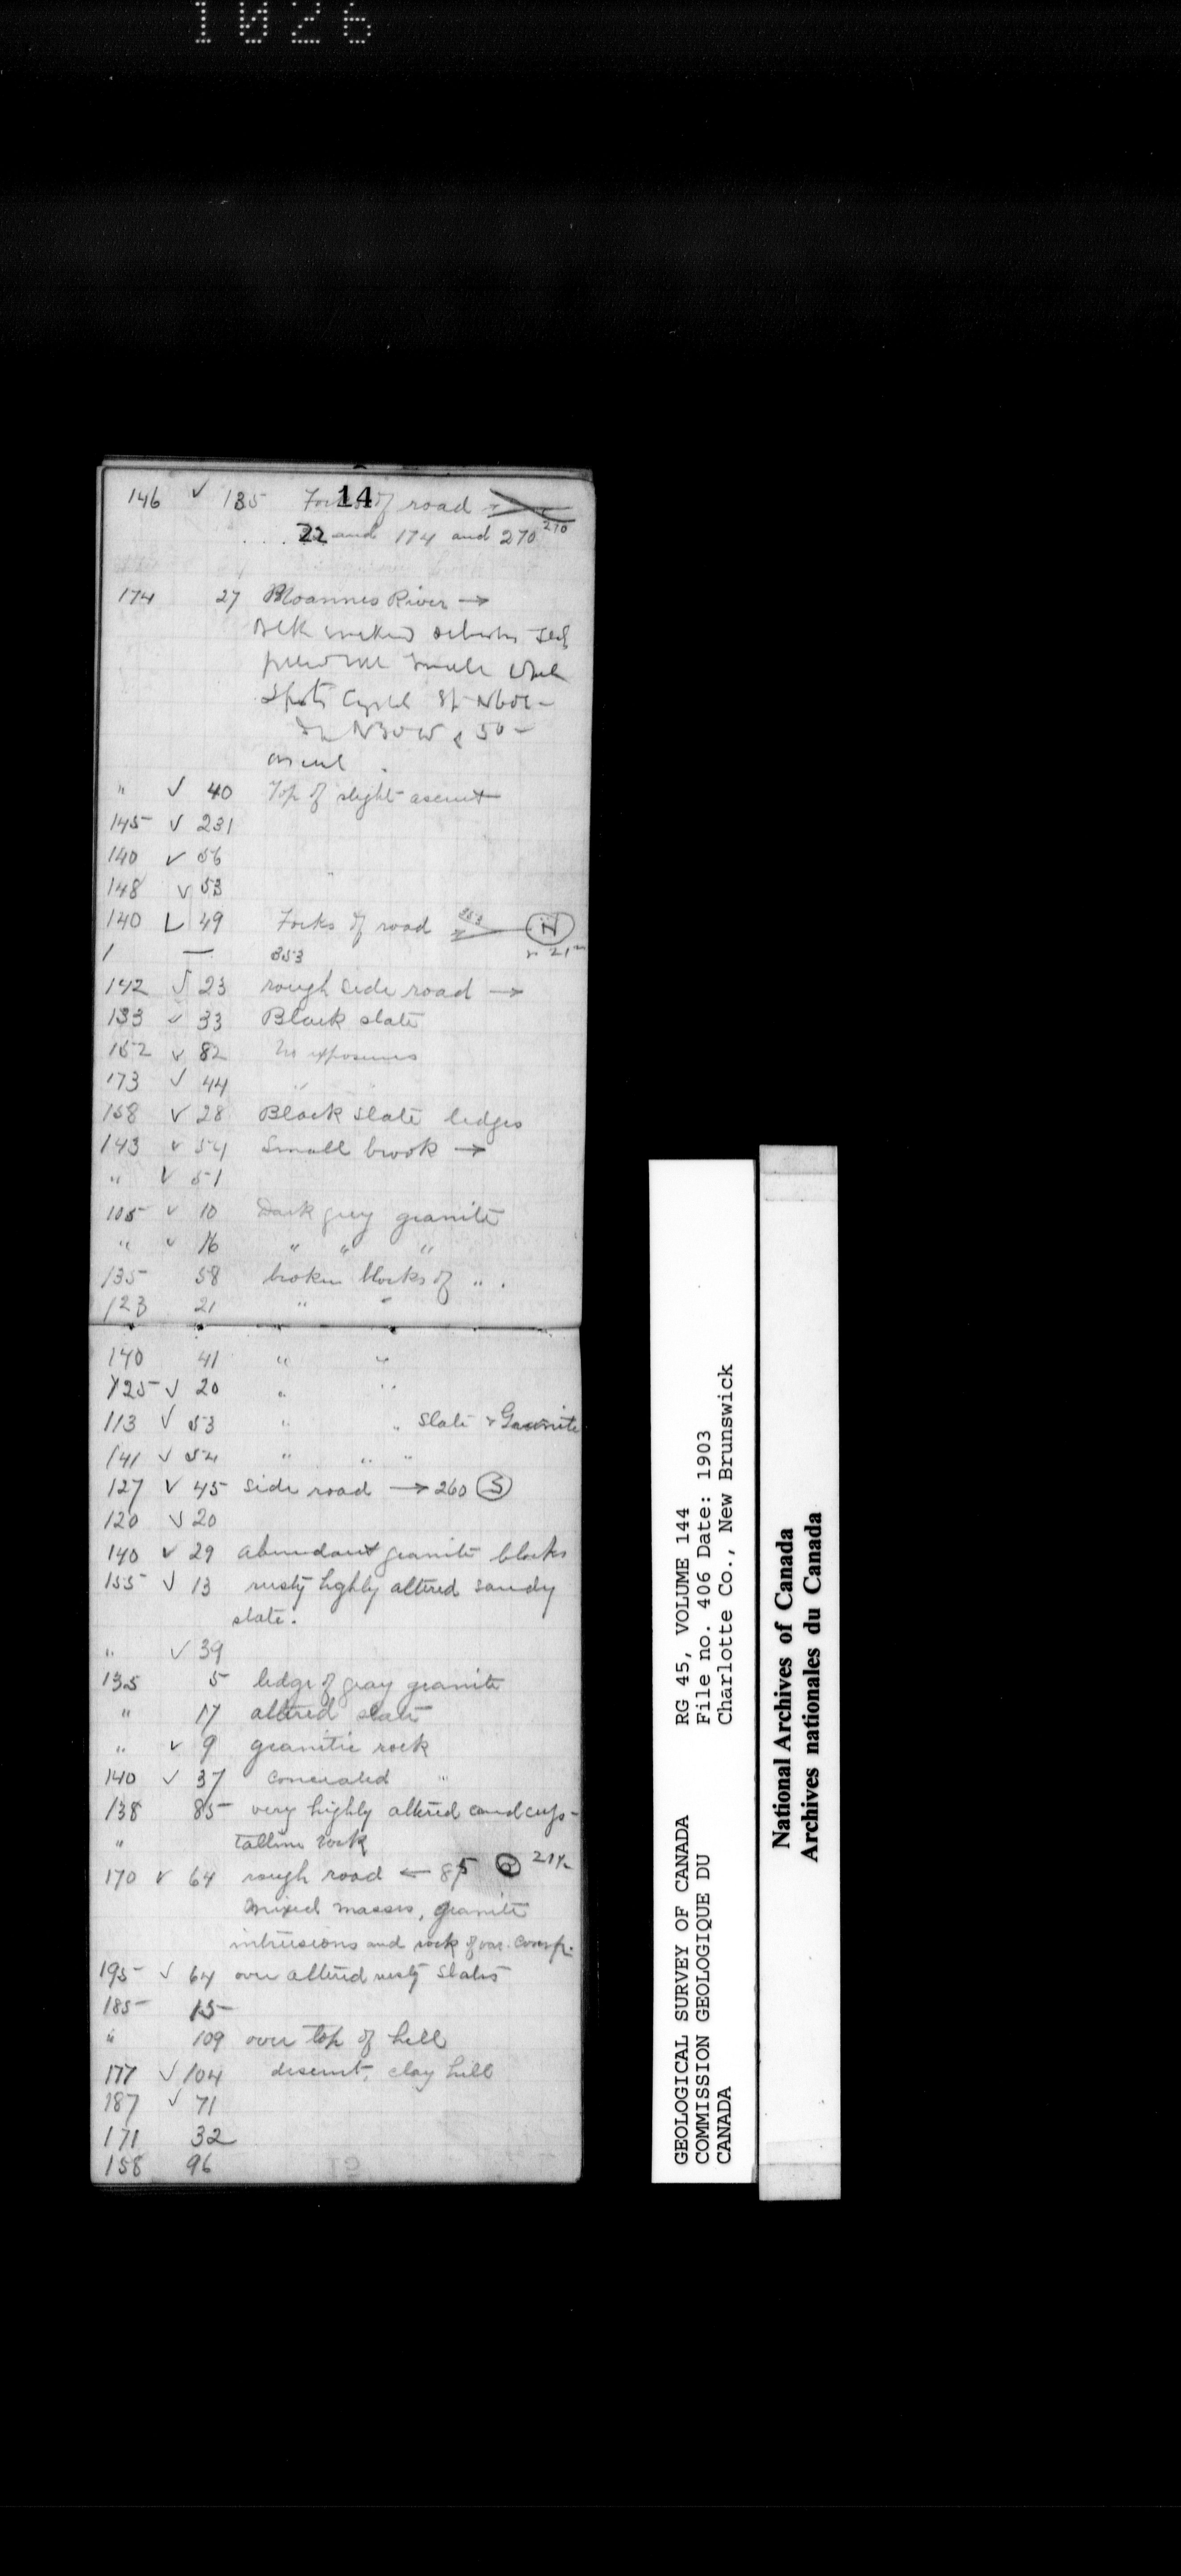 1026
14
146 ✓ 135 Forks of road
22 and 174 and 270 270
174 27 Moannes River →
Spots
N30W 50
" ✓ 40 Top of slight ascent
145 ✓ 231
140 ✓ 56
148 ✓ 53
140 ✓ 49 Forks of road 353 N
1 — 353
142 ✓ 23 rough side road →
133 ✓ 33 Black slate
152 ✓ 82 No exposures
173 ✓ 44 "
158 ✓ 28 Black slate ledges
143 ✓ 54 Small brook →
" ✓ 51
105 ✓ 10 Dark grey granite
" ✓ 16 " " "
135 58 broken blocks of " .
123 21 " "
140 41 " "
125 ✓ 20 " "
113 ✓ 53 " " Slate & Granite
141 ✓ 54 " " "
127 ✓ 45 Side road → 260 S
120 ✓ 20
140 ✓ 29 abundant granite blocks
155 ✓ 13 rusty highly altered sandy
slate.
" ✓ 39
135 5 ledge of gray granite
" 17 altered slate
" ✓ 9 granitic rock
140 ✓ 37 concealed "
138 85 very highly altered and crys-
" talline rock
170 ✓ 64 rough road ← 85
mixed masses, granite
intrusions and rock of var. comp.
195 ✓ 64 over altered rusty slates
185 15
" 109 over top of hill
177 ✓ 104 descent, clay hill
187 ✓ 71
171 32
158 96
GEOLOGICAL SURVEY OF CANADA
COMMISSION GEOLOGIQUE DU
CANADA
RG 45, VOLUME 144
File no. 406 Date: 1903
Charlotte Co., New Brunswick
National Archives of Canada
Archives nationales du Canada